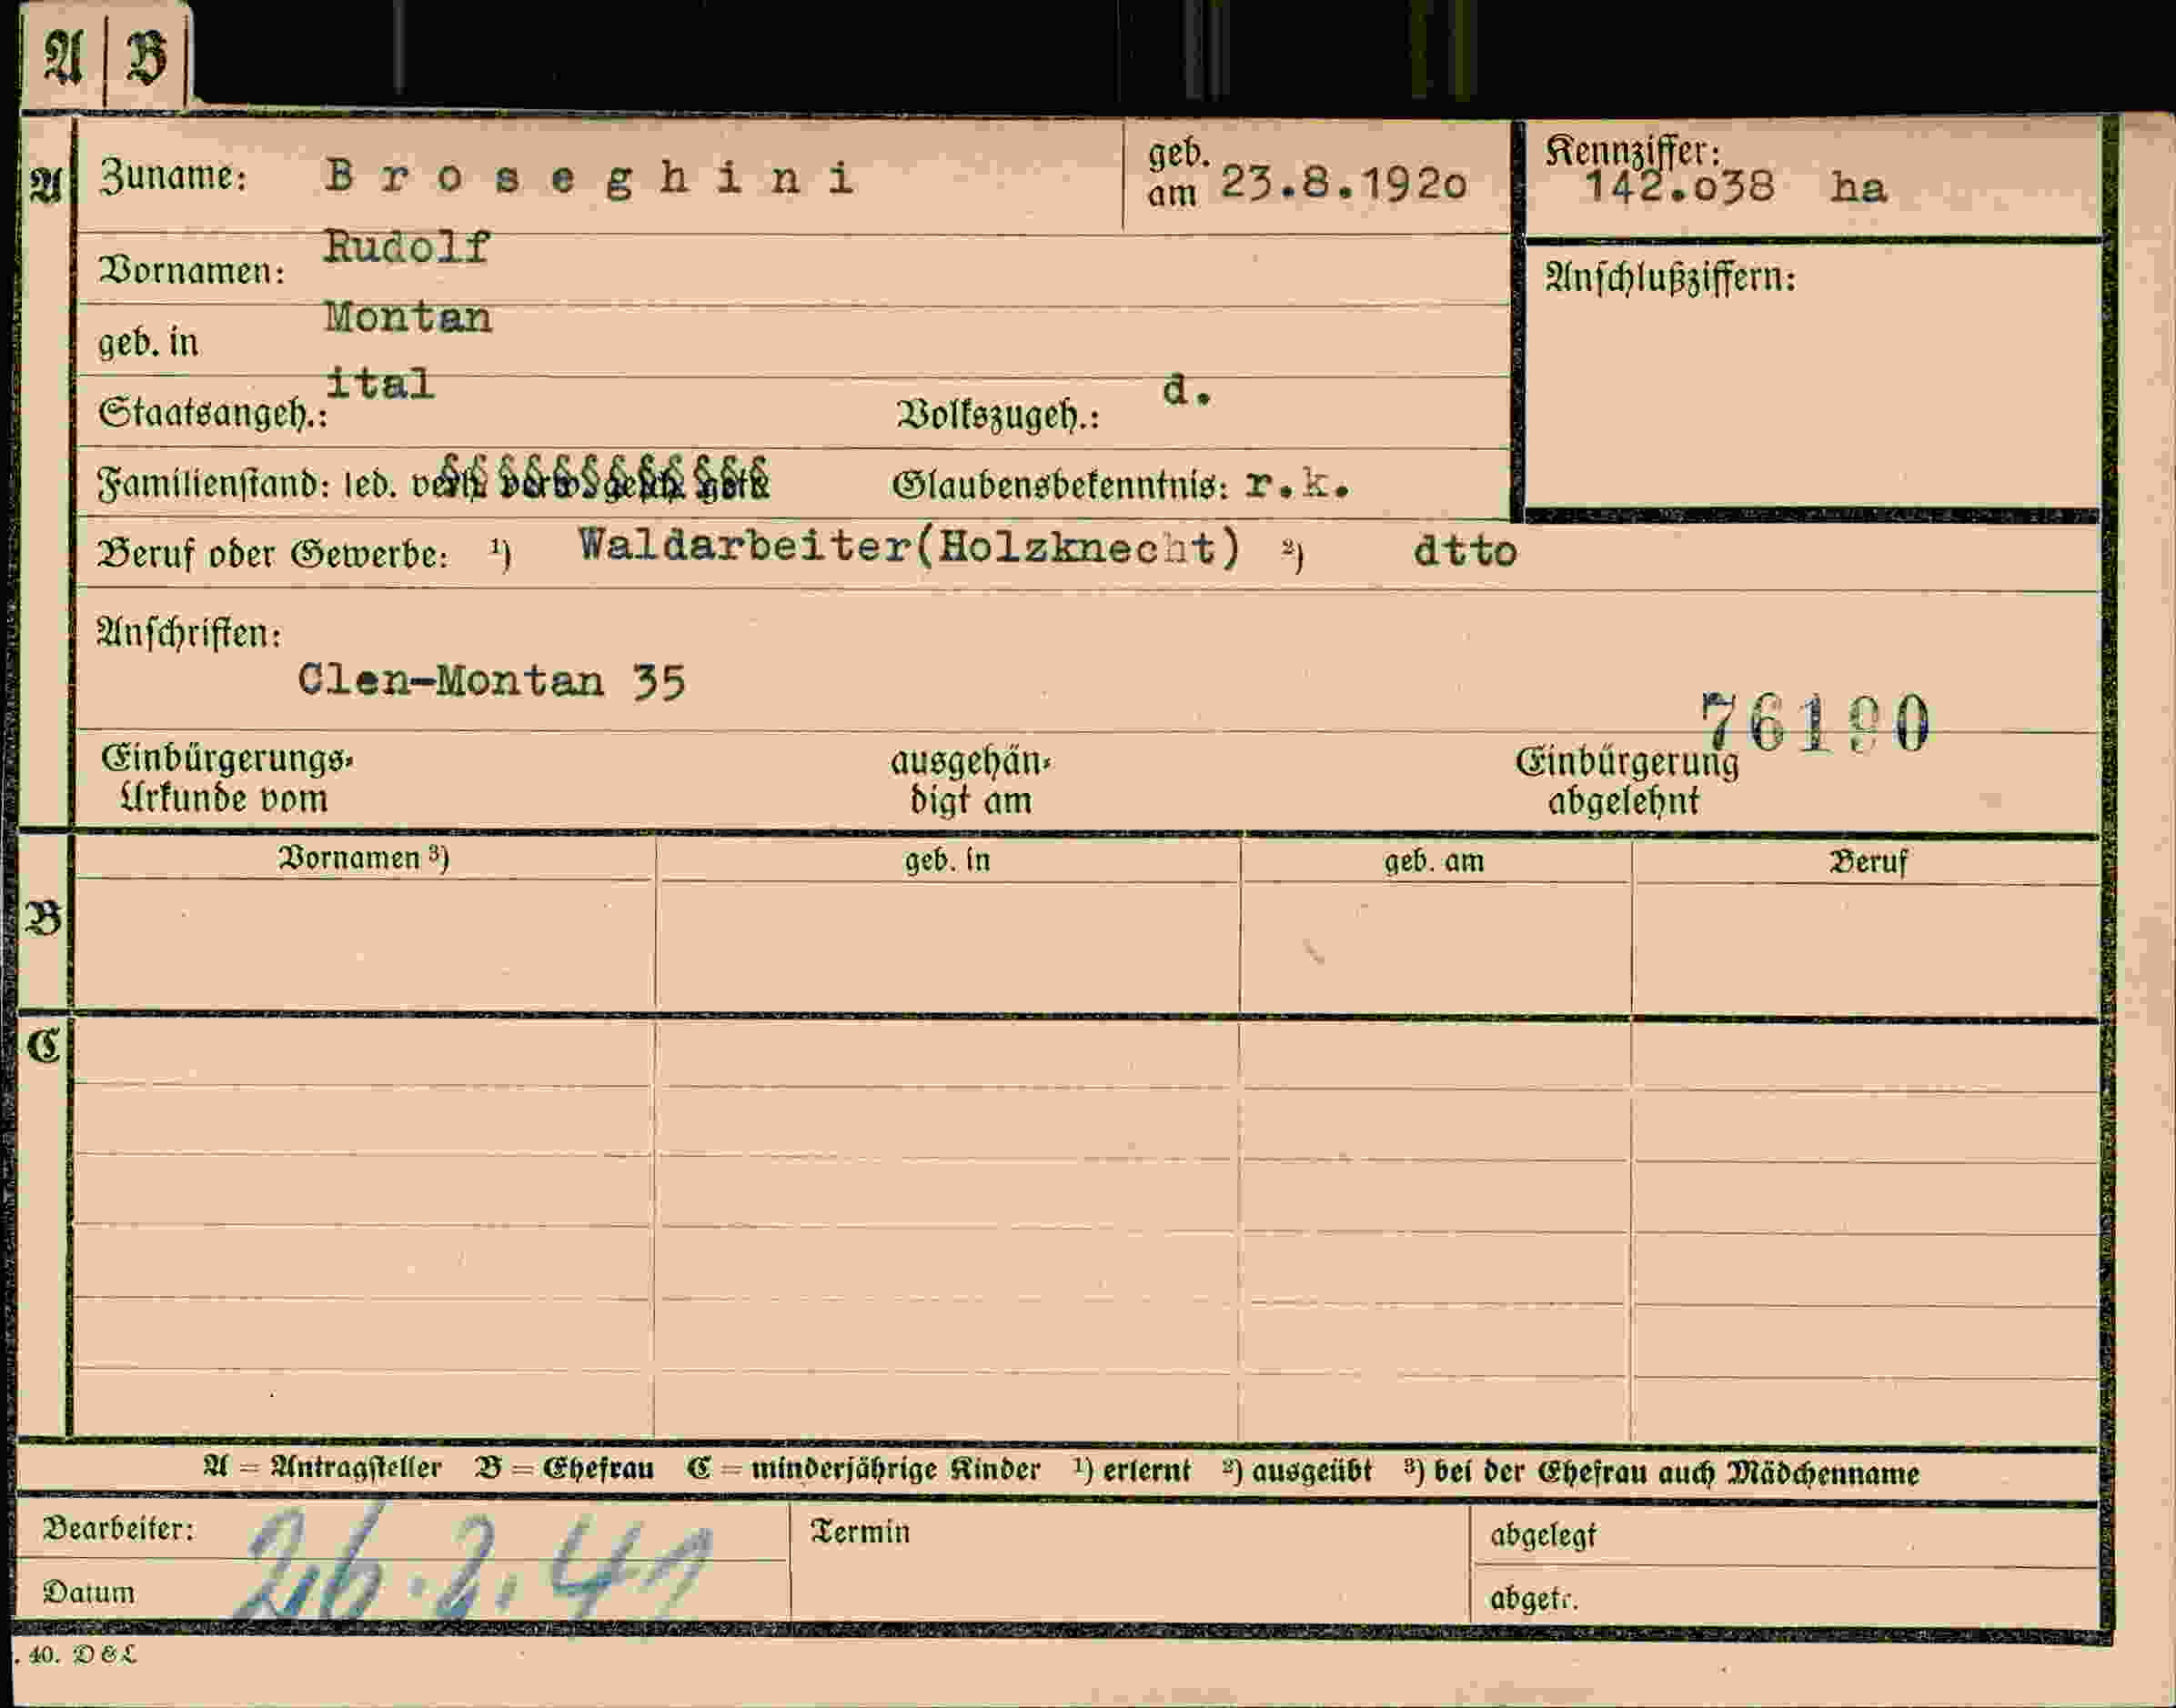 A B
A Zuname: Broseghini geb. am 23.8.1920 Kennziffer: 142.038 ha
Vornamen: Rudolf Anschlußziffern:
geb. in Montan
Staatsangeh.: ital Volkszugeh.: d.
Familienstand: led. verh. verw. gesch. getr. Glaubensbekenntnis: r.k.
Beruf oder Gewerbe: ¹) Waldarbeiter(Holzknecht) ²) dtto
Anschriften:
Clen-Montan 35
76190
Einbürgerungs- ausgehän- Einbürgerung
Urkunde vom digt am abgelehnt
Vornamen ³) geb. in geb. am Beruf
B
C
A = Antragsteller B = Ehefrau C = minderjährige Kinder ¹) erlernt ²) ausgeübt ³) bei der Ehefrau auch Mädchenname
Bearbeiter: Termin abgelegt
Datum abgetr.
. 40. D & L